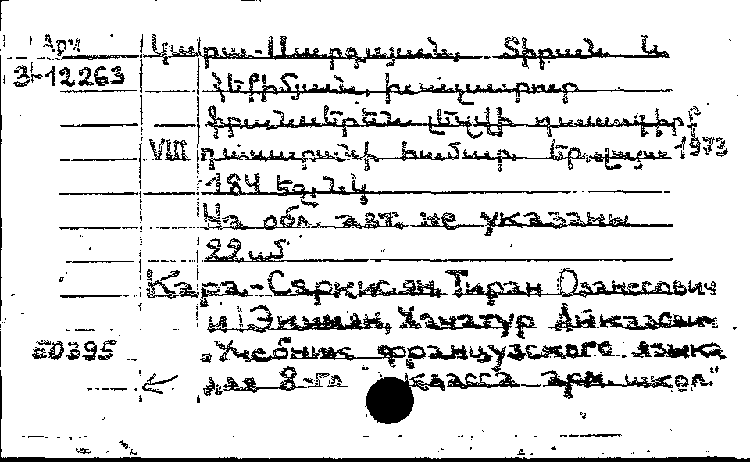 Арм Կարա-Սարգսյան, Տիրան և
3-12263 Հեքիմյան, Խաչատուր
Ֆրանսերեն լեզվի դասագիրք
VIII դասարանի համար. Եր., 1973
184 էջ, նկ
На обл. авт. не указаны
22
Кара-Саркисян, Тиран Оганесович
и Экимян, Хачатур Айказович
50395 „Учебник французского языка
для 8-го класса арм. школ."